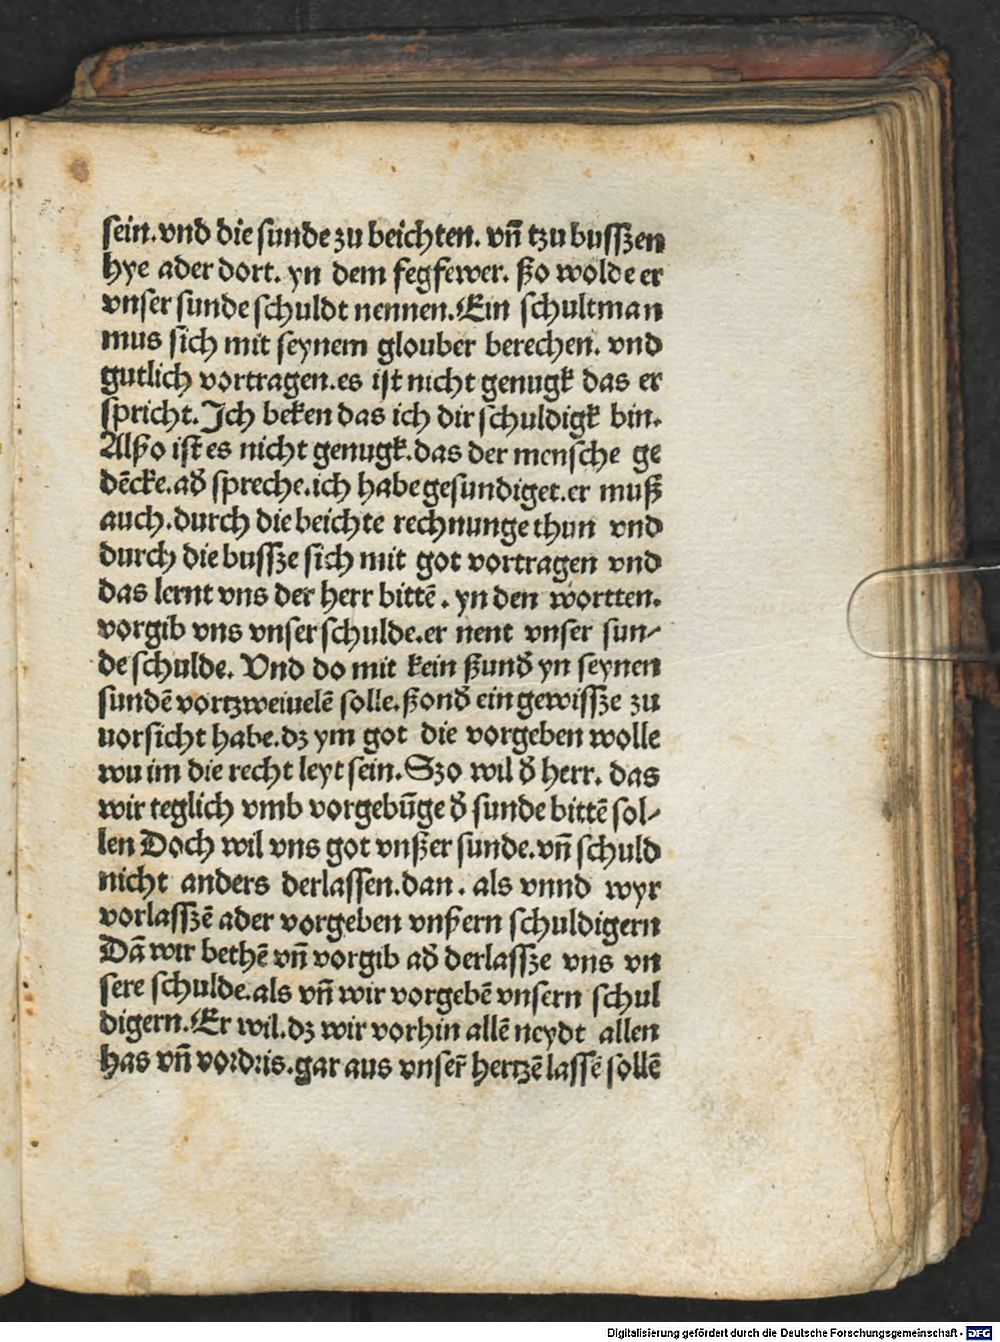 sein.vnd die sunde zu beichten. vn̄ tzu busszen
hye ader dort. yn dem fegfewer. ßo wolde er
vnser sunde schuldt nennen.Ein schultman
mus sich mit seynem glouber berechen. vnd
gutlich vortragen.es ist nicht genugk das er
spricht.Ich beken das ich dir schuldigk bin.
Alßo ist es nicht genugk.das der mensche ge
dēcke.ad̄ spreche.ich habe gesundiget.er muß
auch.durch die beichte rechnunge thun vnd
durch die bussze sich mit got vortragen vnd
das lernt vns der herr bittē. yn den wortten.
vorgib vns vnser schulde.er nent vnser sun⸗
de schulde. Vnd do mit kein ßund̄ yn seynen
sundē vortzweiuelē solle.ßond̄ ein gewissze zu
uorsicht habe.dz ym got die vorgeben wolle
wu im die recht leyt sein.Szo wil d̄ herr. das
wir teglich vmb vorgebūge d̄ sunde bittē sol⸗
len Doch wil vns got vnßer sunde.vn̄ schuld
nicht anders derlassen.dan. als vnnd wyr
vorlasszē ader vorgeben vnßern schuldigern
Dā wir bethē vn̄ vorgib ad̄ derlassze vns vn
sere schulde.als vn̄ wir vorgebē vnsern schul
digern.Er wil.dz wir vorhin allē neydt allen
has vn̄ vordris.gar aus vnser̄ hertzē lassē sollē
Digitalisierung gefördert durch die Deutsche Forschungsgemeinschaft - DFG